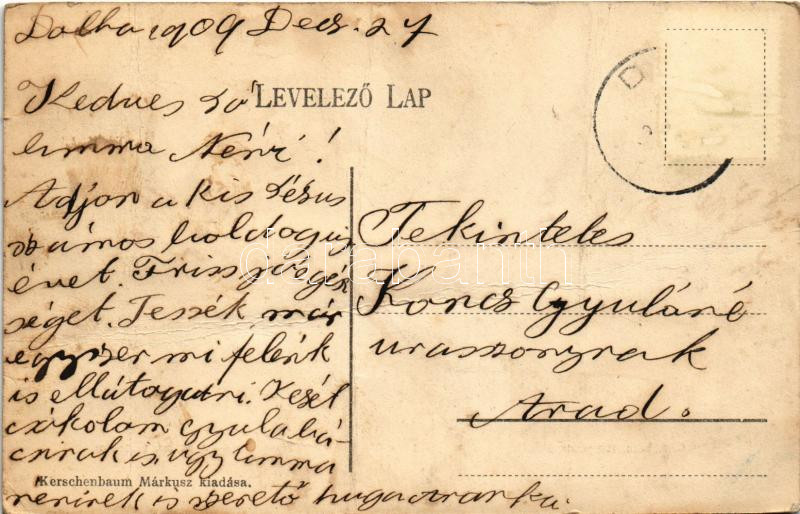 Dolha 1909 Decz. 27
LEVELEZŐ LAP
Kedves Jó
Emma Néni!
Adjon a kis Jésus
számos boldog új
évet. Friss jó egés
séget. Tessék már
egyszer mi felénk
is ellátogatni. Kezét
czókolom gyula bá-
csinak is úgy Emma
neninek is szerető huga Aranka.
Tekinteles
Koncs Gyuláné
uraszonynak
Arad.
Kerschenbaum Márkusz kiadása.
darabanth